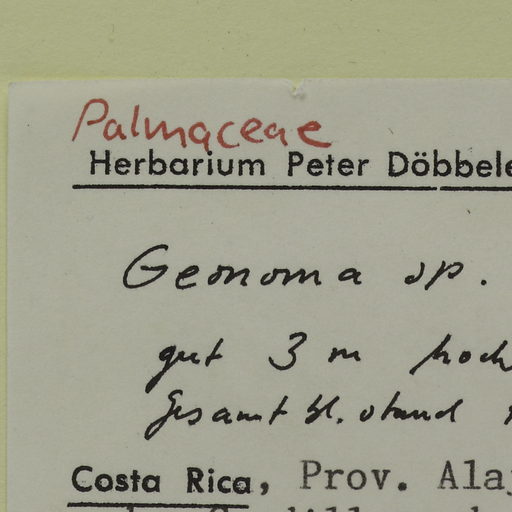 Palmaceae
Herbarium Peter Döbbele
Geonoma sp.
gut 3 m hoch
Gesamtbl.stand
Costa Rica, Prov. Alaj